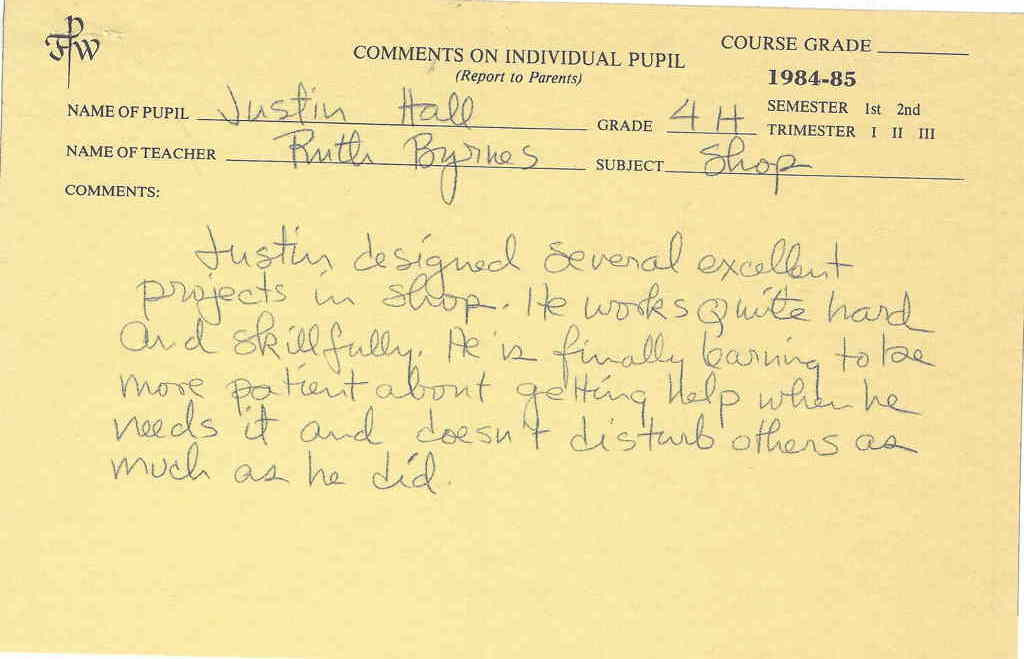 FPW
COMMENTS ON INDIVIDUAL PUPIL
(Report to Parents)
COURSE GRADE
1984-85
NAME OF PUPIL Justin Hall GRADE 4H
SEMESTER 1st 2nd
TRIMESTER I II III
NAME OF TEACHER Ruth Byrnes SUBJECT Shop
COMMENTS:
Justin designed several excellent
projects in shop. He works quite hard
and skillfully. He is finally learning to be
more patient about getting help when he
needs it and doesn't disturb others as
much as he did.